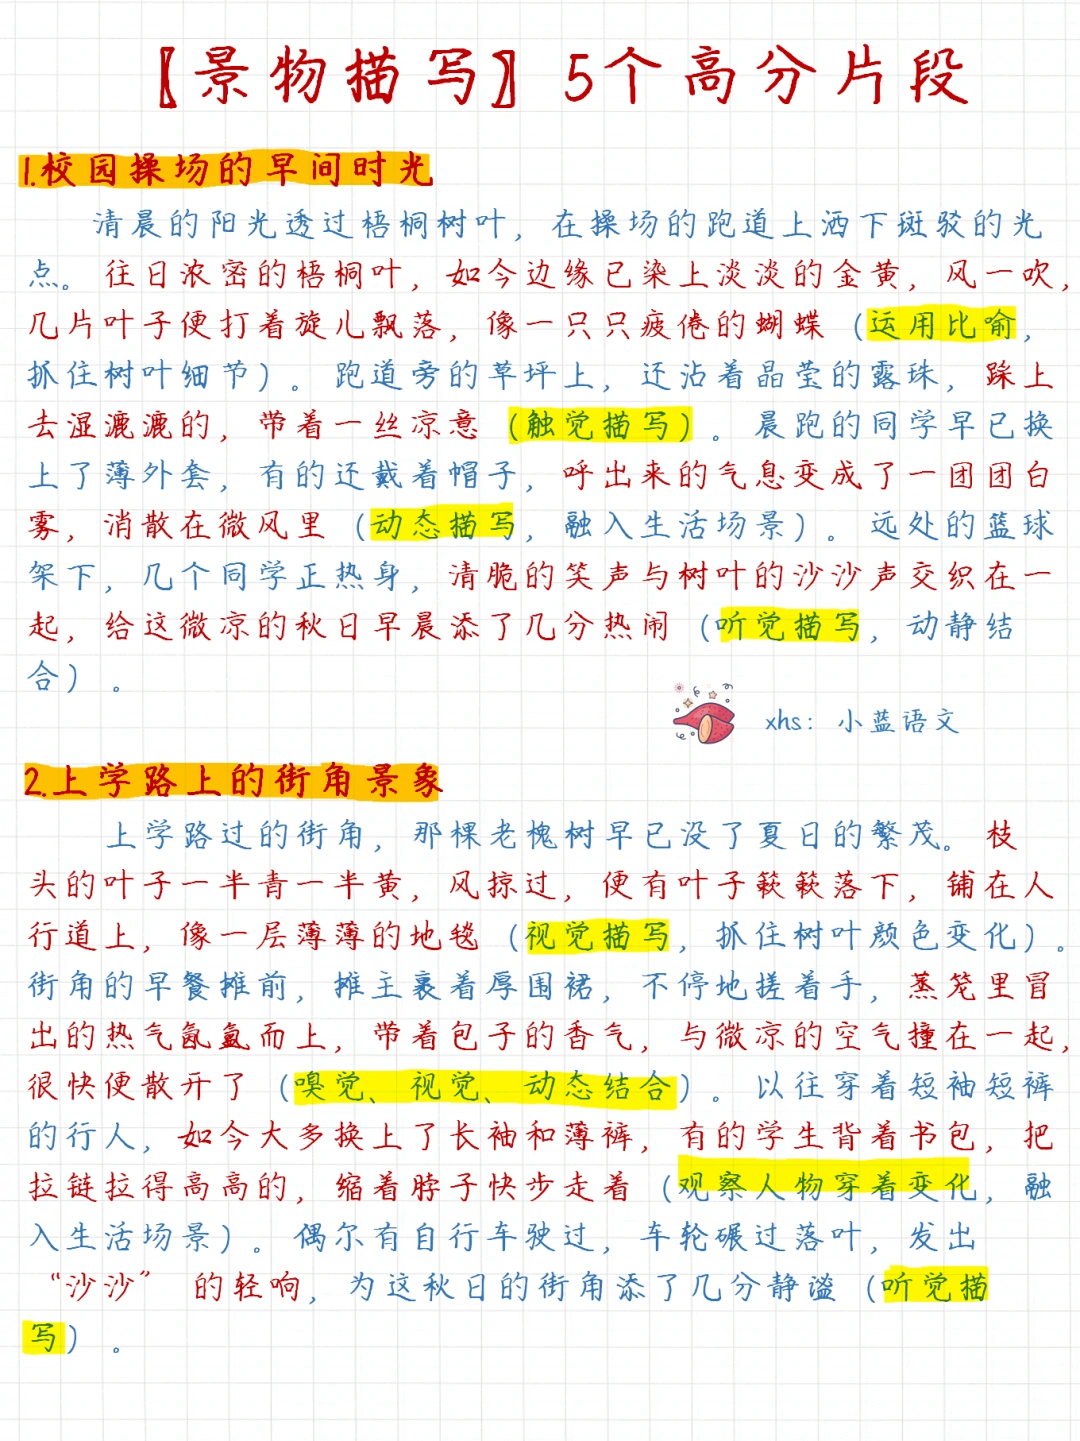 【景物描写】5个高分片段
1.校园操场的早间时光
清晨的阳光透过梧桐树叶，在操场的跑道上洒下斑驳的光
点。往日浓密的梧桐叶，如今边缘已染上淡淡的金黄，风一吹，
几片叶子便打着旋儿飘落，像一只只疲倦的蝴蝶（运用比喻，
抓住树叶细节）。跑道旁的草坪上，还沾着晶莹的露珠，踩上
去湿漉漉的，带着一丝凉意（触觉描写）。晨跑的同学早已换
上了薄外套，有的还戴着帽子，呼出来的气息变成了一团团白
雾，消散在微风里（动态描写，融入生活场景）。远处的篮球
架下，几个同学正热身，清脆的笑声与树叶的沙沙声交织在一
起，给这微凉的秋日早晨添了几分热闹（听觉描写，动静结
合）。
xhs：小蓝语文
2.上学路上的街角景象
上学路过的街角，那棵老槐树早已没了夏日的繁茂。枝
头的叶子一半青一半黄，风掠过，便有叶子簌簌落下，铺在人
行道上，像一层薄薄的地毯（视觉描写，抓住树叶颜色变化）。
街角的早餐摊前，摊主裹着厚围裙，不停地搓着手，蒸笼里冒
出的热气氤氲而上，带着包子的香气，与微凉的空气撞在一起，
很快便散开了（嗅觉、视觉、动态结合）。以往穿着短袖短裤
的行人，如今大多换上了长袖和薄裤，有的学生背着书包，把
拉链拉得高高的，缩着脖子快步走着（观察人物穿着变化，融
入生活场景）。偶尔有自行车驶过，车轮碾过落叶，发出
“沙沙”的轻响，为这秋日的街角添了几分静谧（听觉描
写）。